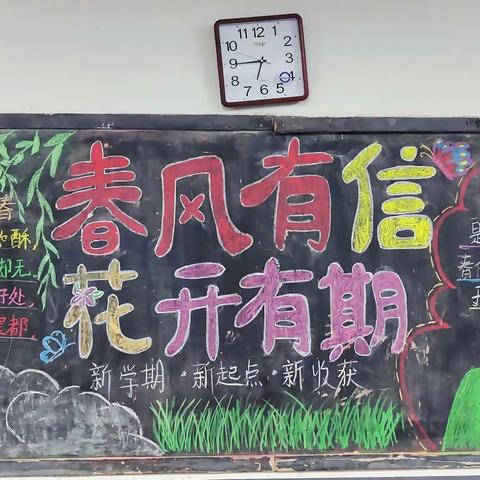 11 12 1
10 2
9 3
8 4
7 6 5
春风有信
花开有期
新学期·新起点·新收获
春
酥,
却无.
好处,
皇都.